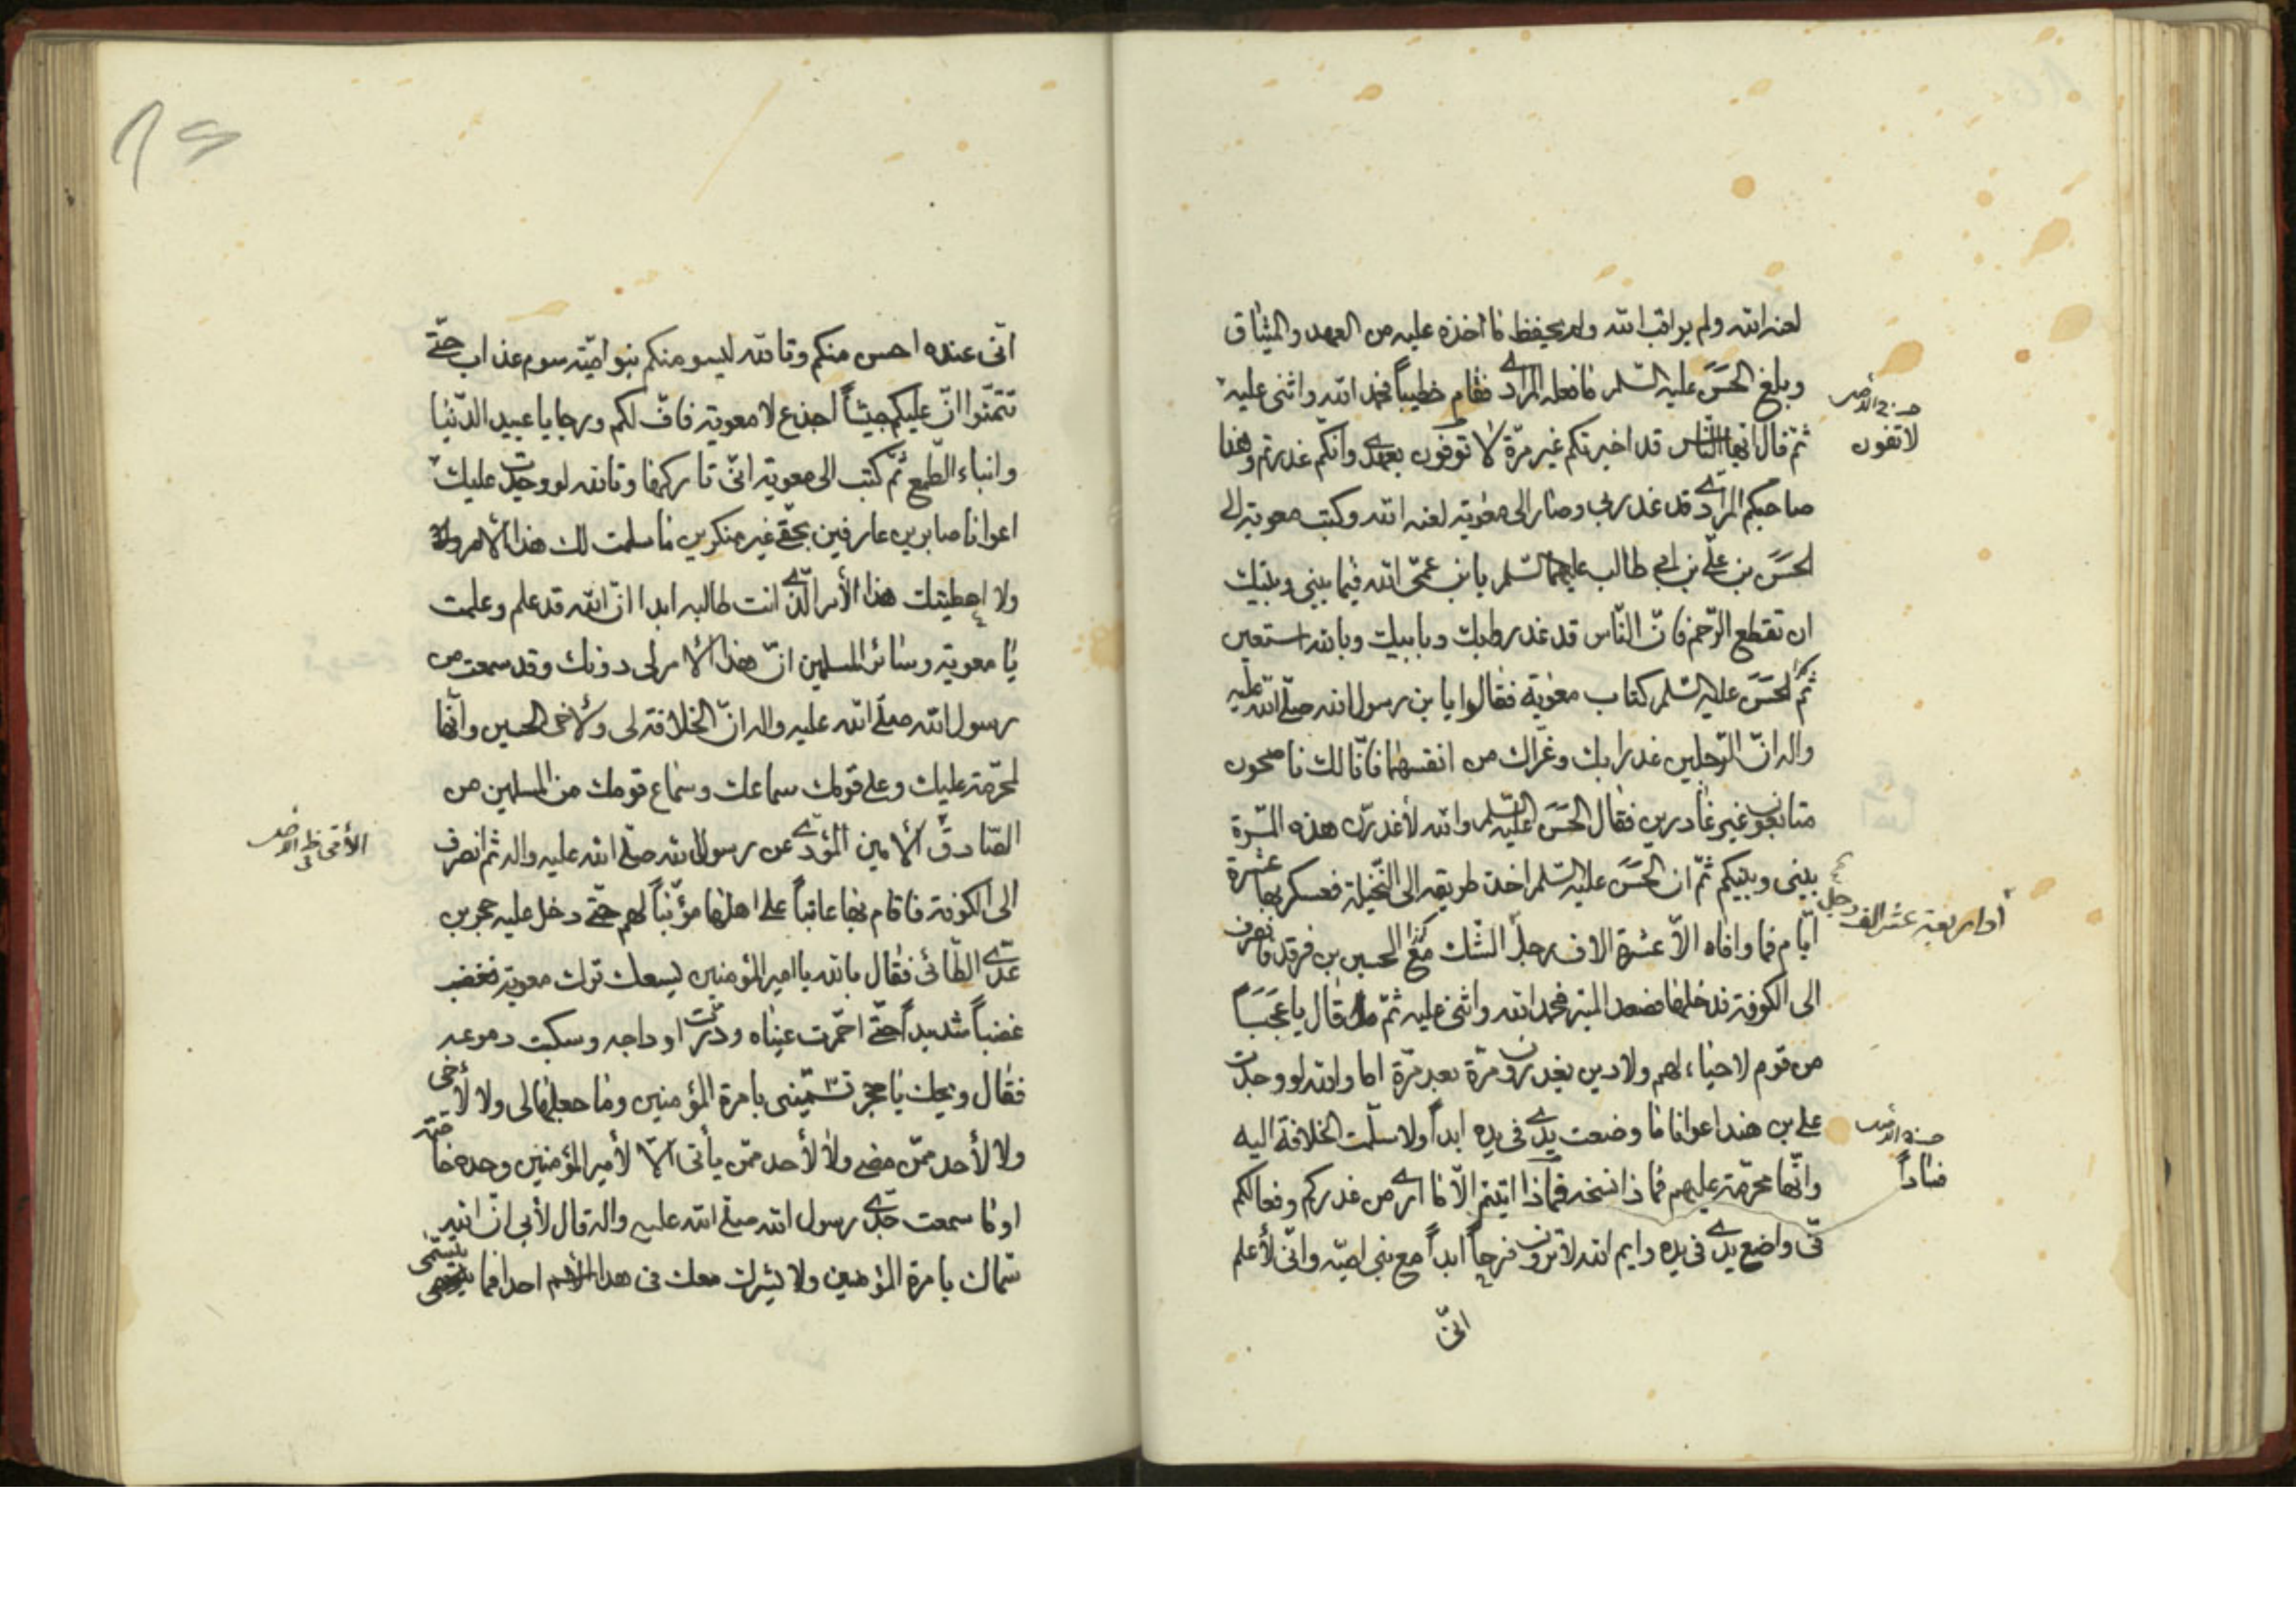 لعنه الله ولم يراقب الله ولم يحفظ ما أخذه عليه من العهد والميثاق
وبلغ الحسن عليه السلم ما فعله المرادي فقام خطيباً فحمد الله واثنى عليه
ثم قال ايها الناس قد اخبرتكم غير مرّة لا توفون بعهد وانكم غدرتم وهذا
صاحبكم المرادي قد غدر بي وصار الى معوية لعنه الله وكتب معوية الى
الحسن بن علي بن ابي طالب عليهما السلم يا بن عمّى الله فيما بيني وبينك
ان تقطع الرّحم فانّ النّاس قد غدر بك وبابيك وبالله استعين
ثم الحسن عليه السلم كتاب معوية فقالوا يا بن رسول الله صلّى الله عليه
واله انّ الرّجلين غدرا بك وغرّاك من انفسهما فانّا لك ناصحون
متابعون غير غادرين فقال الحسن عليه السلم والله لأغدرنّ هذه المرّة
بيني وبينكم ثمّ ان الحسن عليه السلم اخذ طريقه الى النّخيلة فعسكر بها عشرة
ايّام فما وافاه الاّ عشرة الاف رجل الشّك مع الحسين بن فرقد فانصرف
الى الكوفة فدخلها فصعد المنبر فحمد الله واثنى عليه ثمّ قال يا عجباً
من قوم لا حياء لهم ولا دين يغدرون مرّة بعد مرّة اما والله لو وجدت
على بن هند اعوانا ما وضعت يدي في يده ابداً ولا سلّمت الخلافة اليه
وانّها محرّمة عليهم فماذا اتيتم الاّ ما ارى من غدركم وفعالكم
فيّ واضع يدي في يده وايم الله لا ترون فرجاً ابداً مع بني اميّة وانّي لأعلم
انّى
لا تفون
أو اربعة عشر الف رجل
انّى عنده احسن منكم وتالله ليسومنكم بنو اميّة سوء عذاب حتّى
تتمنّوا انّ عليكم جيشاً اجذع لا معوية فافّ لكم وترحا يا عبيد الدّنيا
وابناء الطّمع ثمّ كتب الى معوية انّى تاركها وتالله لو وجدت عليك
اعوانا صابرين عارفين بحقّى غير منكرين ما سلمت لك هذا الأمر
ولا اعطيتك هذا الأمر الّذي انت طالبه ابدا انّ الله قد علم وعلمت
يا معوية وسائر المسلمين انّ هذا الأمر لى دونك وقد سمعت من
رسول الله صلّى الله عليه واله انّ الخلافة لى ولأخى الحسين وانّها
لمحرّمة عليك وعلى قومك سماعك وسماع قومك من المسلمين من
الصّادق الأمين المؤدّي عن رسول الله صلّى الله عليه واله ثم انصرف
الى الكوفة فاقام بها عاتباً على اهلها مؤنّباً لهم حتّى دخل عليه حجر بن
عدّي الطّائى فقال بالله يا امير المؤمنين يسعك ترك معوية فغضب
غضباً شديداً حتّى احمرّت عيناه ودرّت اوداجه وسكبت دموعه
فقال ويحك يا حجر تسمّينى بامرة المؤمنين وما جعلها لى ولا لأخى
ولا لأحد ممّن مضى ولا لأحد ممّن يأتى الاّ لأمير المؤمنين وحده خاصّة
او ما سمعت جدّي رسول الله صلّى الله عليه واله قال لأبي انّ الله
سمّاك بامرة المؤمنين ولا يشرك معك فى هذا الأسم احدا فما يتسمّى